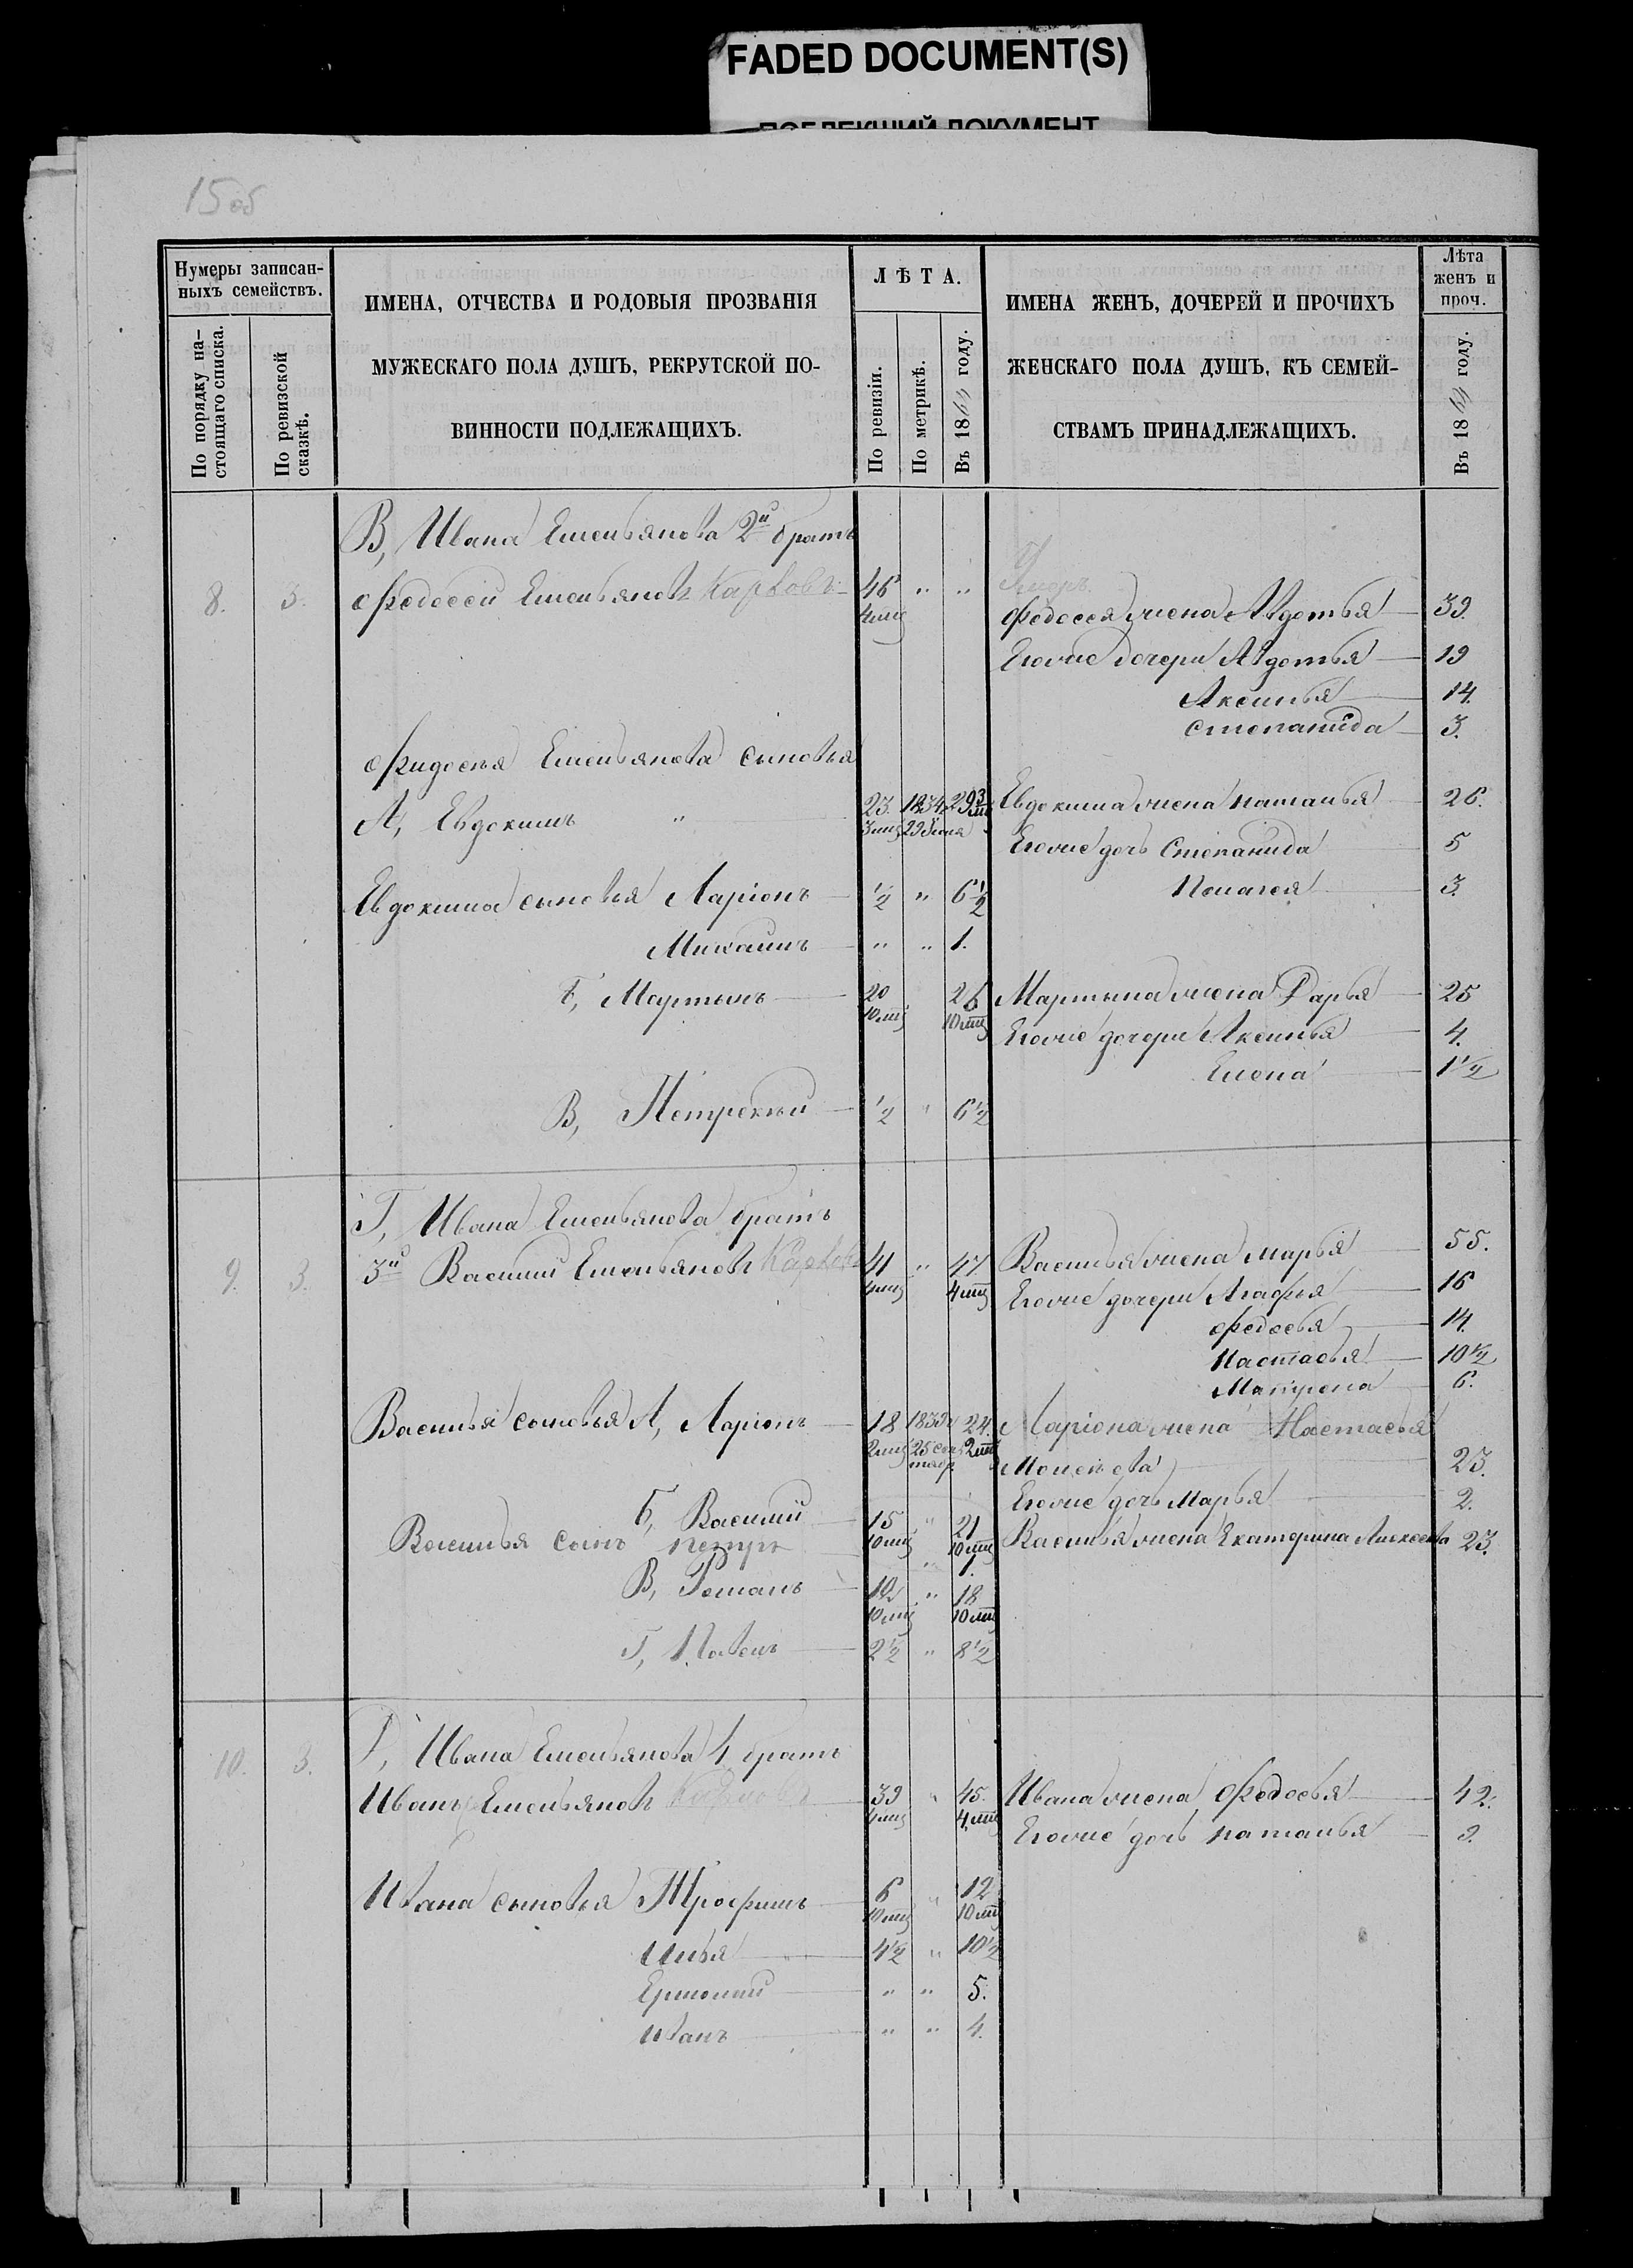 FADED DOCUMENT(S)
ПОБЛЕКШИЙ ДОКУМЕНТ
15 об
Нумеры записанныхъ семействъ.
По порядку настоящаго списка.
По ревизской сказкѣ.
ИМЕНА, ОТЧЕСТВА И РОДОВЫЯ ПРОЗВАНІЯ
МУЖЕСКАГО ПОЛА ДУШЪ, РЕКРУТСКОЙ ПО-
ВИННОСТИ ПОДЛЕЖАЩИХЪ.
ЛѢТА.
По ревизіи.
По метрикѣ.
Въ 1864 году.
ИМЕНА ЖЕНЪ, ДОЧЕРЕЙ И ПРОЧИХЪ
ЖЕНСКАГО ПОЛА ДУШЪ, КЪ СЕМЕЙ-
СТВАМЪ ПРИНАДЛЕЖАЩИХЪ.
Лѣта женъ и проч.
Въ 1864 году.
В, Ивана Емельянова 2й братъ
8. 3. Федосей Емельяновъ Карповъ 46 " " Умеръ
4 мц Федосея жена Авдотья 39.
Еговые дочери Авдотья 19
Аксинья 14.
Степанида 3.
Фидосея Емельянова сыновья
А, Евдокимъ " 23. 1834 29 3 мц Евдокима жена Наталья 26.
3 мц 29 Юля
Еговые дочь Степанида 5
Евдокима сыновья Ларіонъ 1/2 " 6 1/2 Пелагея 3.
Михаилъ " " 1.
Б, Мартынъ 20 26 Мартына жена Дарья 25
10 мц 10 мц Еговые дочери Аксинья 4.
Елена 1 1/2
В, Петрекѣй 1/2 " 6 1/2
Г, Ивана Емельянова братъ
9. 3. 3й Василий Емельяновъ Карповъ 41 " 47 Василья жена Марья 55.
4 мц 4 мц Еговые дочери Агафья 16
Федосья 14.
Настасья 10 1/2
Матрена 6.
Василья сыновья А, Ларіонъ 18 1839 24. Ларіона жена Настасья
2 мц 25 сентябр 2 мц 23.
Еговые дочь Марья 2.
Б, Василий 15 " 21 Василья жена Екатерина Алексеева 23.
10 мц 10 мц
Василья сынъ Петръ " 1.
В, Романъ 12 " 18
10 мц 10 мц
Г, Павелъ 2 1/2 " 8 1/2
10. 3. Ивана Емельянова 4 братъ
Иванъ Емельяновъ Карповъ 39 " 45. Ивана жена Федосья 42.
4 мц 4 мц Еговые дочь Наталья 9.
Ивана сыновья Трофимъ 6 " 12
10 мц 10 мц
Илья 4 1/2 " 10 1/2
Ермолай " " 5.
Иванъ " " 4.